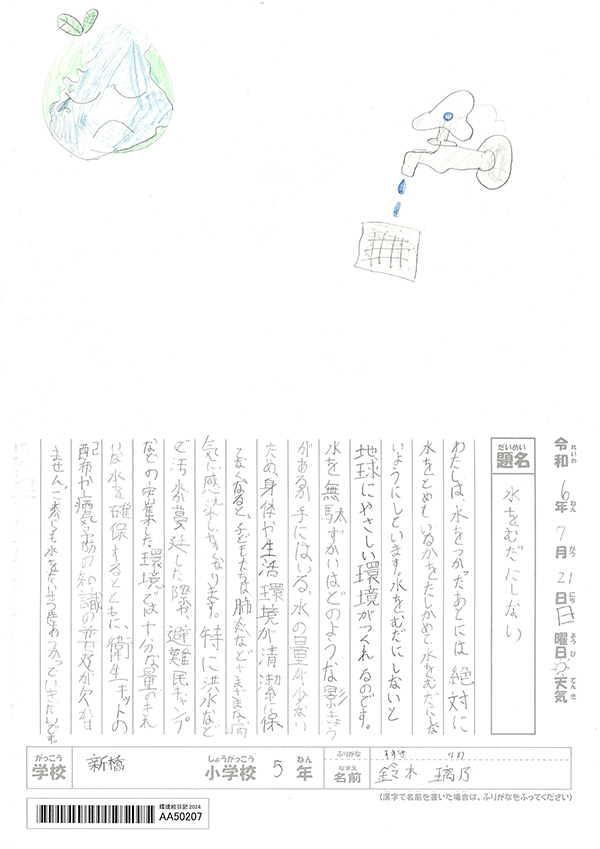 令和6年7月21日日曜日 天気
れいわ ねん がつ にち ようび てんき
題名 水をむだにしない
だいめい
わたしは、水をつかったあとには、絶対に
水をとめているかをたしかめて水をむだにしな
いようにしています。水をむだにしないと
地球にやさしい環境がつくれるのです。
水を無駄づかいはどのような影きょう
があるか、手にはいる、水の量が少ない
ため、身体や生活環境が清潔に保
てなくなると、子どもたちは肺炎などさまざまな病
気に感染しやすくなります。特に洪水など
で汚水が蔓延した際や、避難民キャンプ
などの密集した環境では十分な量のきれ
いな水を確保するとともに、衛生キットの
配布や病気予防の知識の普及が欠かせ
ません。
がっこう
学校 新橋
しょうがっこう ねん
小学校 5年
ふりがな すずき りの
なまえ
名前 鈴木 璃乃
(漢字で名前を書いた場合は、ふりがなをふってください)
環境絵日記2024
AA50207